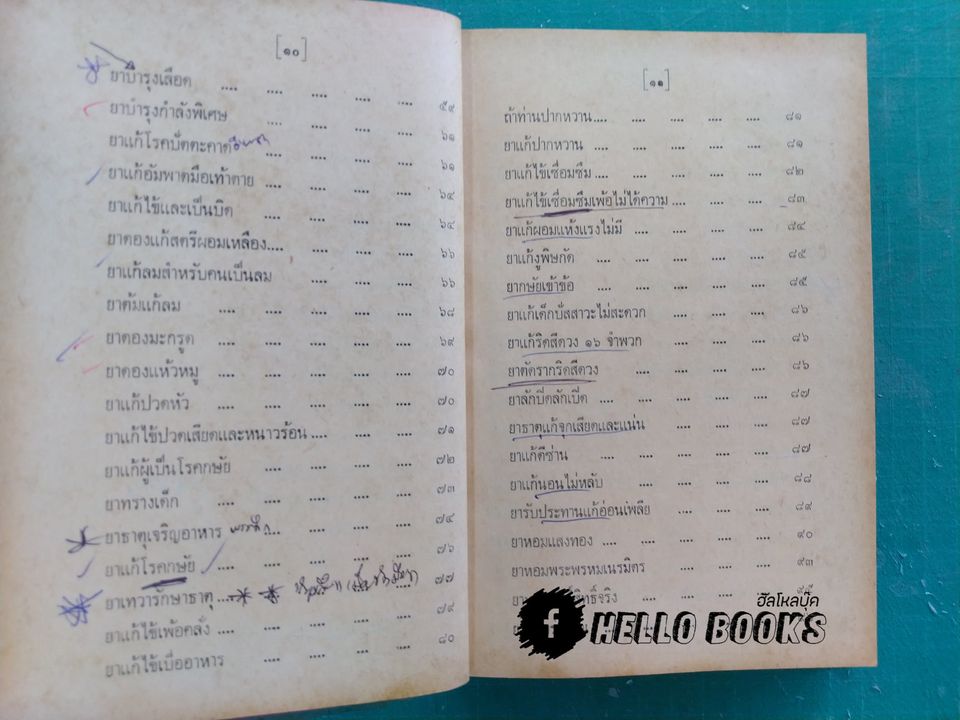 [๑๐]
ยาบำรุงเลือด .... .... .... .... .... ๕๙
ยาบำรุงกำลังพิเศษ .... .... .... .... ๖๑
ยาแก้โรคปัตตะคาด .... .... .... .... ๖๑
ยาแก้อัมพาตมือเท้าตาย .... .... .... .... ๖๔
ยาแก้ไข้และเป็นบิด .... .... .... .... ๖๔
ยาดองแก้สตรีผอมเหลือง.... .... .... .... ๖๖
ยาแก้ลมสำหรับคนเป็นลม .... .... .... .... ๖๖
ยาต้มแก้ลม .... .... .... .... .... ๖๘
ยาดองมะกรูด .... .... .... .... .... ๖๙
ยาดองแห้วหมู .... .... .... .... .... ๗๐
ยาแก้ปวดหัว .... .... .... .... .... ๗๐
ยาแก้ไข้ปวดเสียดและหนาวร้อน .... .... .... ๗๑
ยาแก้ผู้เป็นโรคกษัย .... .... .... .... ๗๒
ยาทรางเด็ก .... .... .... .... .... ๗๓
ยาธาตุเจริญอาหาร .... .... .... .... ๗๔
ยาแก้โรคกษัย .... .... .... .... .... ๗๖
ยาเทวารักษาธาตุ .... ๗๗
ยาแก้ไข้เพ้อคลั่ง .... .... .... .... .... ๗๙
ยาแก้ไข้เบื่ออาหาร .... .... .... .... ๘๐
[๑๑]
ถ้าท่านปากหวาน.... .... .... .... .... ๘๑
ยาแก้ปากหวาน .... .... .... .... .... ๘๑
ยาแก้ไข้เซื่อมซึม .... .... .... .... .... ๘๒
ยาแก้ไข้เซื่อมซึมเพ้อไม่ได้ความ .... .... .... ๘๓
ยาแก้ผอมแห้งแรงไม่มี .... .... .... .... ๘๔
ยาแก้งูพิษกัด .... .... .... .... .... ๘๕
ยากษัยเข้าข้อ .... .... .... .... .... ๘๕
ยาแก้เด็กปัสสาวะไม่สะดวก .... .... .... ๘๖
ยาแก้ริดสีดวง ๑๖ จำพวก .... .... .... ๘๖
ยาตัดรากริดสีดวง .... .... .... .... ๘๖
ยาลักปิดลักเปิด .... .... .... .... .... ๘๗
ยาธาตุแก้จุกเสียดและแน่น .... .... .... ๘๗
ยาแก้ดีซ่าน .... .... .... .... .... ๘๗
ยาแก้นอนไม่หลับ .... .... .... .... ๘๘
ยารับประทานแก้อ่อนเพลีย .... .... .... ๘๙
ยาหอมแสงทอง .... .... .... .... .... ๙๐
ยาหอมพระพรหมเนรมิตร .... .... .... ๙๓
ฮัลโหลบุ๊ค
f HELLO BOOKS